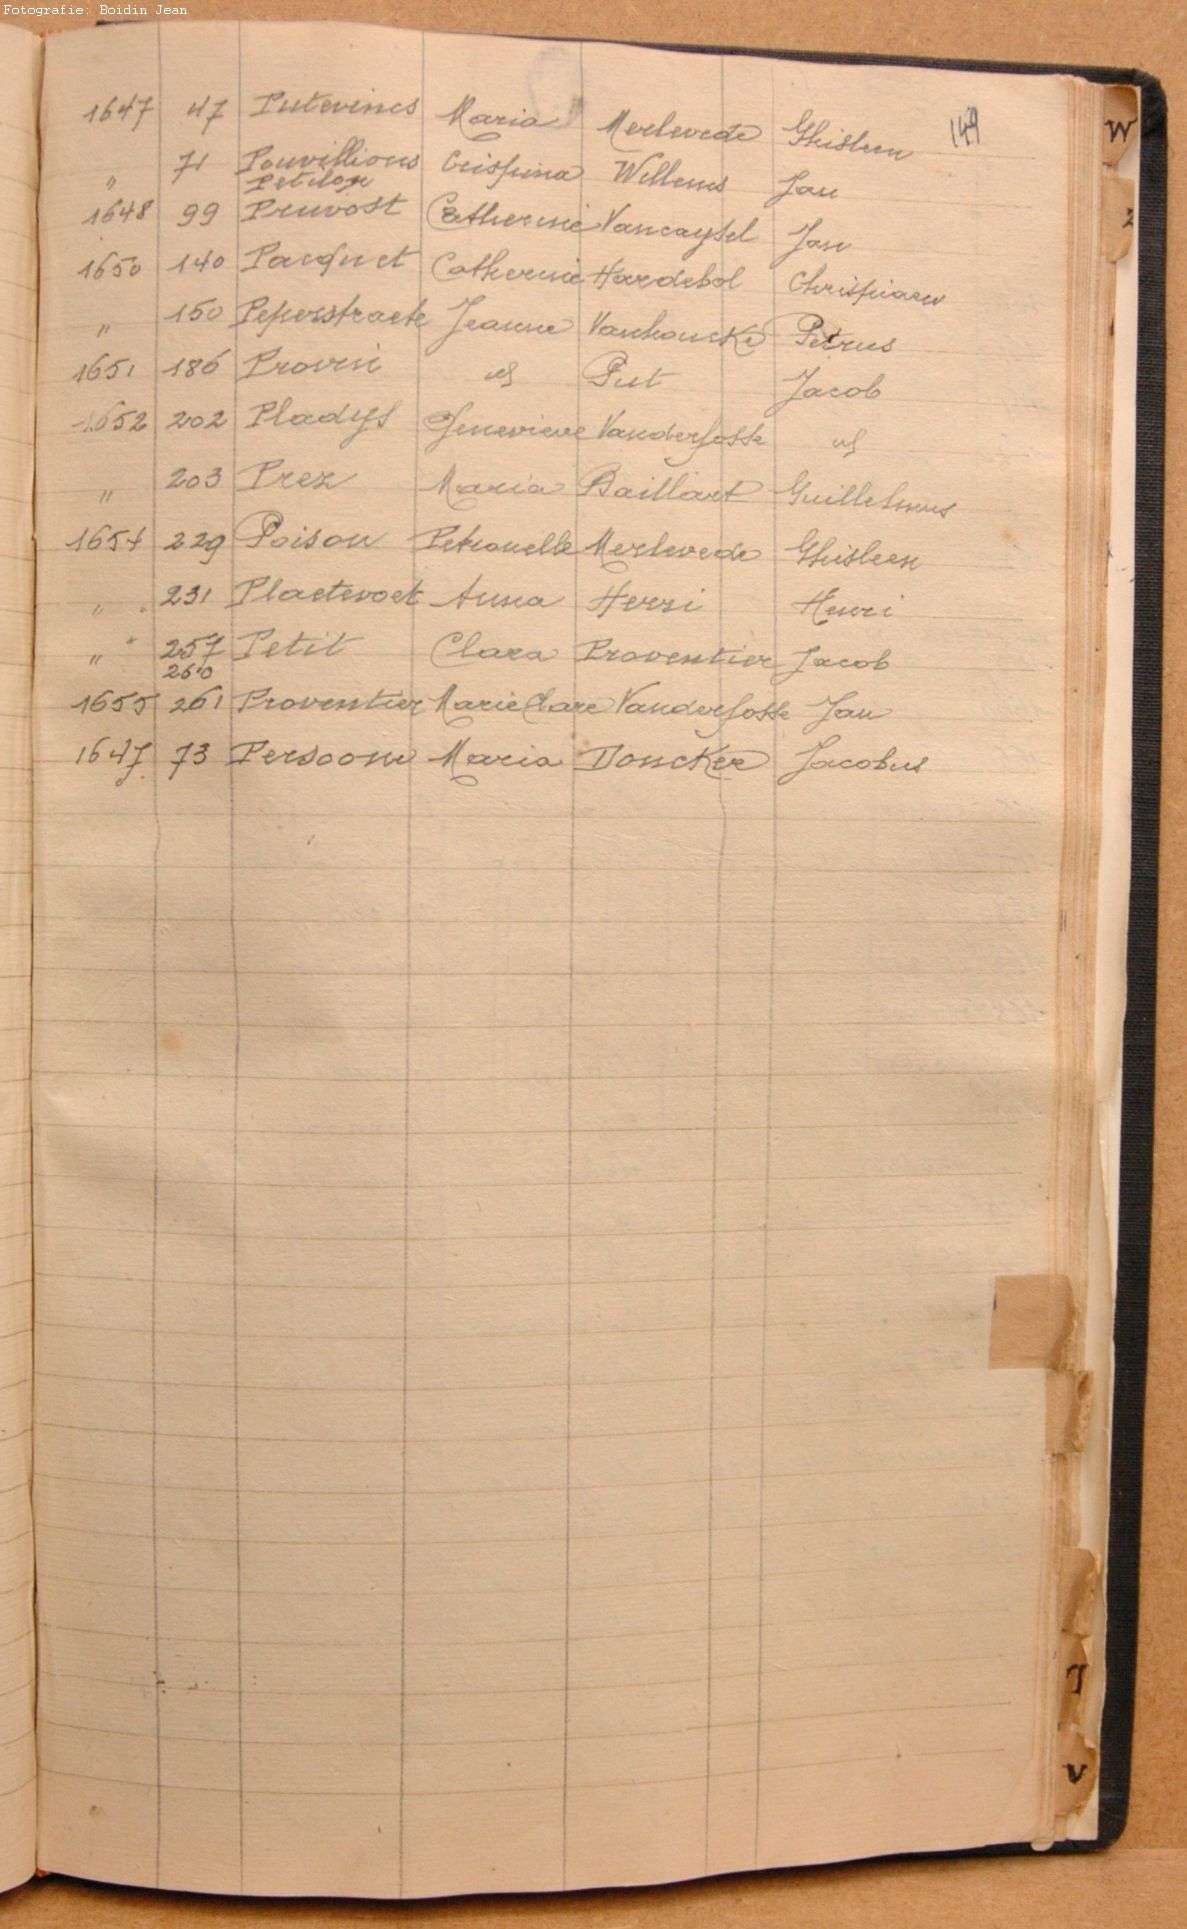 Fotografie: Boidin Jean
149
1647 47 Putevincs Maria Merlevede Ghisleen
" 71 Pouvillions Crispina Willems Jan
Petilon
1648 99 Pruvost Catherine Vancaysel Jan
1650 140 Pacquet Catherine Hardebol Chrispiaen
" 150 Peperstraete Jeanne Vanhoucke Petrus
1651 186 Provin Put Jacob
1652 202 Pladys Genevieve Vanderfosse
" 203 Prez Maria Baillart Guillelmus
1654 229 Poison Petronelle Merlevede Ghisleen
" 231 Plaetevoet Anna Herri Henri
" " 257 Petit Clara Proventier Jacob
260
1655 261 Proventier Marie Clare Vanderfosse Jan
1647 73 Persoone Maria Doncker Jacobus
W
Z
T
V